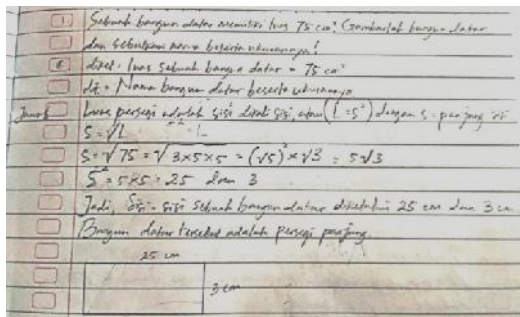 1 Sebuah bangun datar memiliki luas 75 cm². Gambarlah bangun datar
dan sebutkan nama beserta ukurannya!
diket = luas sebuah bangun datar = 75 cm²
dit = Nama bangun datar beserta ukurannya
Jawab Luas persegi adalah sisi dikali sisi, atau (L = s²) dengan s = panjang sisi
S = √L
S = √75 = √3×5×5 = (√5)² × √3 = 5√3
5² = 5×5 = 25 dan 3
Jadi, sisi-sisi sebuah bangun datar diketahui 25 cm dan 3 cm
Bangun datar tersebut adalah persegi panjang.
25 cm
3 cm